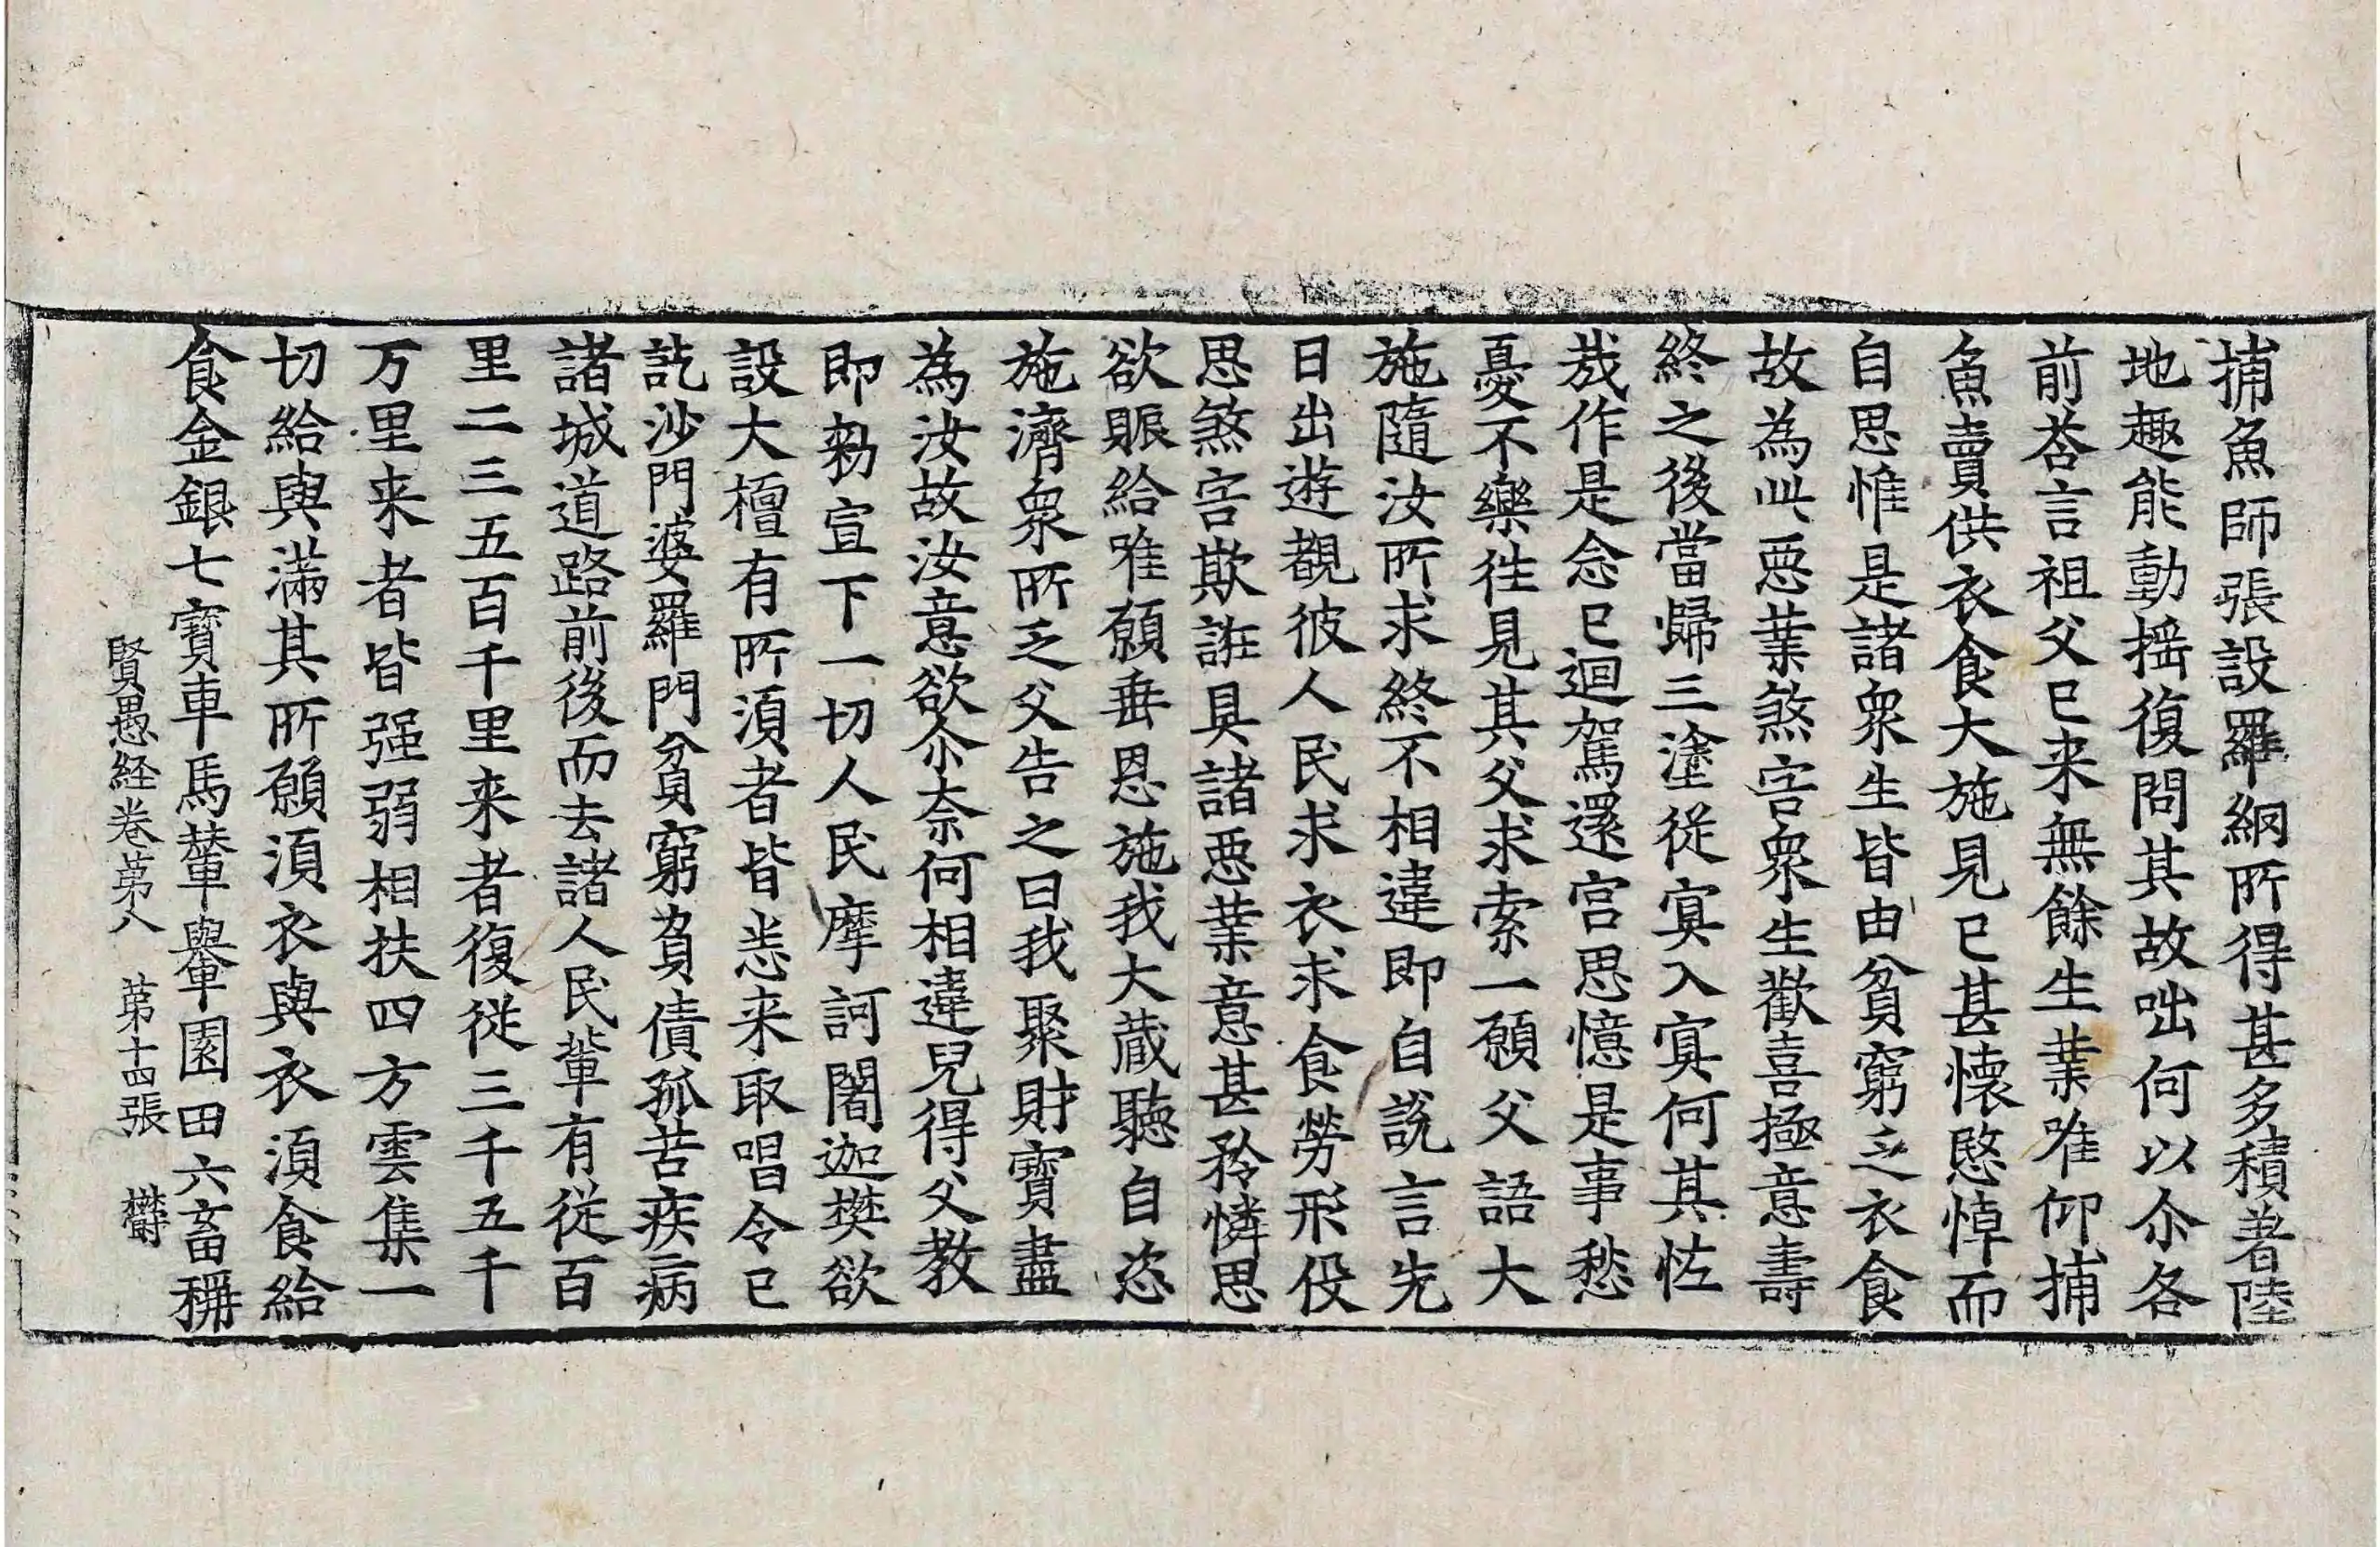 捕魚師張設羅網所得甚多積著陸
地趣能動搖復問其故咄何以尒各
前荅言祖父已来無餘生業唯仰捕
魚賣供衣食大施見已甚懷愍悼而
自思惟是諸衆生皆由貧窮乏衣食
故為此惡業煞害衆生歡喜極意壽
終之後當歸三塗從冥入冥何其恠
哉作是念已迴駕還宫思憶是事愁
憂不樂徃見其父求索一願父語大
施隨汝所求終不相違即自說言先
日出遊觀彼人民求衣求食勞形役
思煞害欺誑具諸惡業意甚矜憐思
欲賑給唯願垂恩施我大蔵聽自恣
施濟衆所乏父告之曰我聚財寶盡
為汝故汝意欲尒柰何相違兒得父教
即勑宣下一切人民摩訶闍迦樊欲
設大檀有所湏者皆悉来取唱令已
訖沙門婆羅門貧窮負債孤苦疾病
諸城道路前後而去諸人民輩有從百
里二三五百千里来者復從三千五千
万里来者皆强弱相扶四方雲集一
切給與滿其所願湏衣與衣湏食給
食金銀七寶車馬輦轝園田六畜稱
賢愚経卷苐八 苐十四張 欝